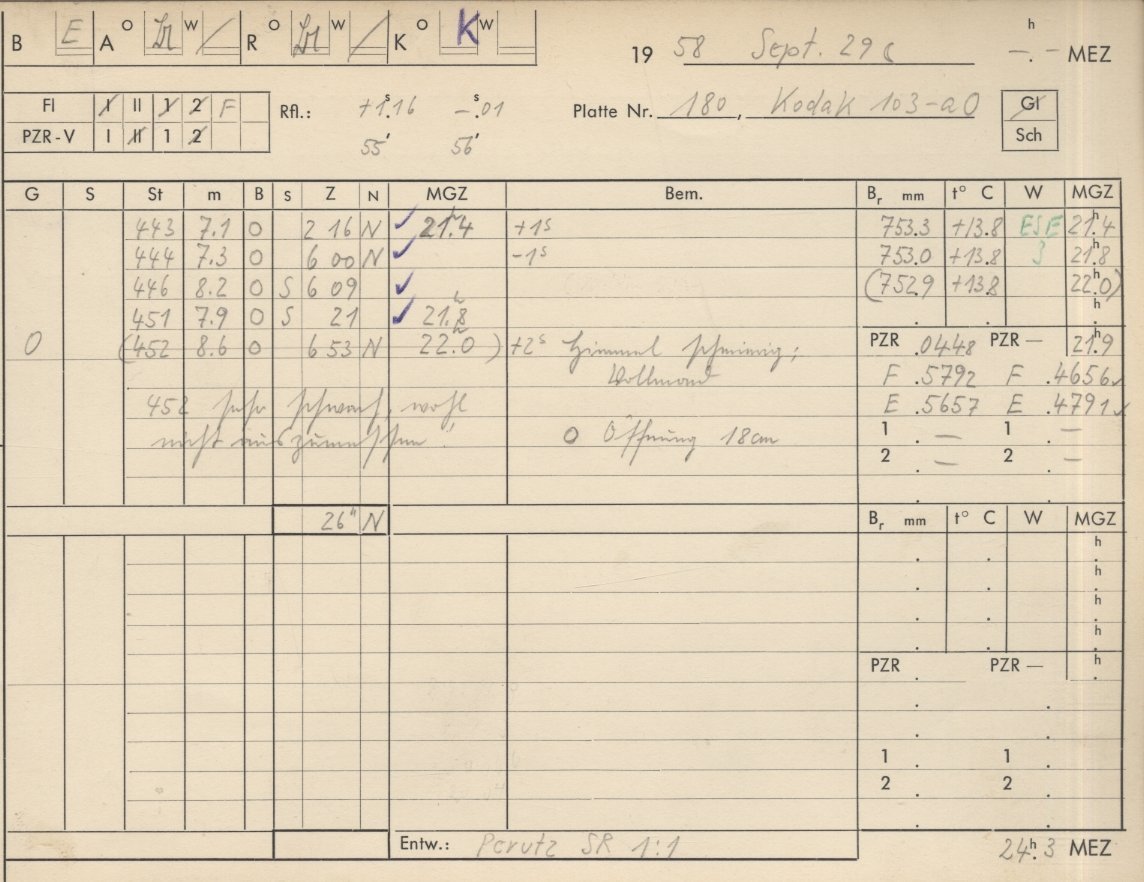 B E A O W R O W K O K W
19 58 Sept. 29 h —.— MEZ
Fl I II 1 2 F
PZR-V I II 1 2
Rfl.: +1ˢ.16 —ˢ.01
55' 56'
Platte Nr. 180, Kodak 103-aO
Gl
Sch
G S St m B S Z N MGZ Bem. Bᵣ mm t° C W MGZ
443 7.1 O 2 16 N ✓ 21.4ʰ +1ˢ 753.3 +13.8 ESE 21.4ʰ
444 7.3 O 6 00 N ✓ -1ˢ 753.0 +13.8 3 21.8ʰ
446 8.2 O S 6 09 ✓ (752.9 +13.8 22.0ʰ)
451 7.9 O S 21 ✓ 21.8ʰ h .
O (452 8.6 O 6 53 N 22.0ʰ) +2ˢ Himmel schmierig; PZR .0448 PZR — 21.9ʰ
Vollmond F .5792 F .4656✓
452 sehr schwach, wohl E .5657 E .4791✓
nicht auszumessen! O Öffnung 18cm 1 . — 1 . —
2 . — 2 . —
26" N Bᵣ mm t° C W MGZ
h
h
h
h
PZR . PZR — h
1 . 1 .
2 . 2 .
Entw.: Perutz SR 1:1 24ʰ.3 MEZ